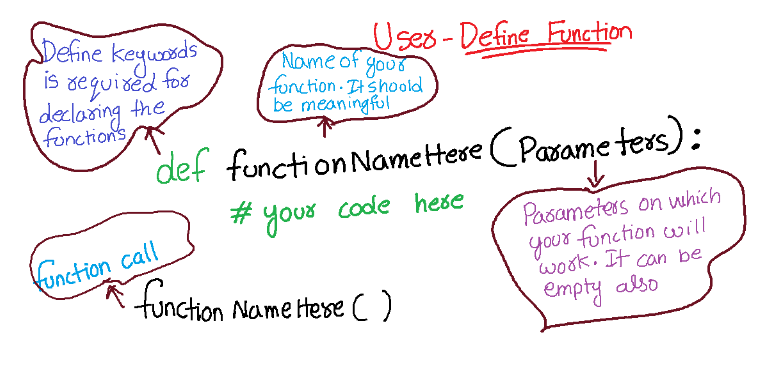 User-Define Function
Define keywords
is required for
declaring the
functions
Name of your
function. It should
be meaningful
def functionNameHere (Parameters):
# your code here
Parameters on which
your function will
work. It can be
empty also
function call
functionNameHere ( )